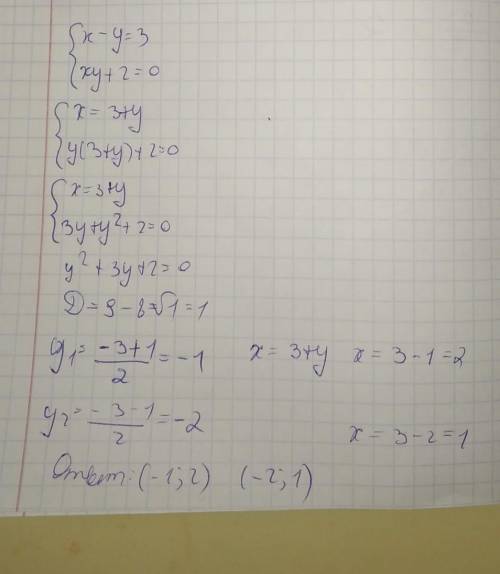 {x-y=3
{xy+2=0
{x=3+y
{y(3+y)+2=0
{x=3+y
{3y+y²+2=0
y²+3y+2=0
D=9-8=√1=1
y₁=(-3+1)/2=-1 x=3+y x=3-1=2
y₂=(-3-1)/2=-2 x=3-2=1
Ответ: (-1;2) (-2;1)